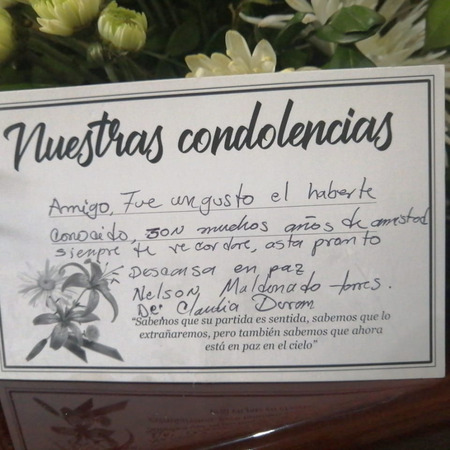 Nuestras condolencias
Amigo, Fue un gusto el haberte
conocido, son muchos años de amistad
siempre te recordre, asta pronto
Descansa en paz
Nelson, Maldonado torres.
De: Claudia Duran
"Sabemos que su partida es sentida, sabemos que lo
extrañaremos, pero también sabemos que ahora
está en paz en el cielo"